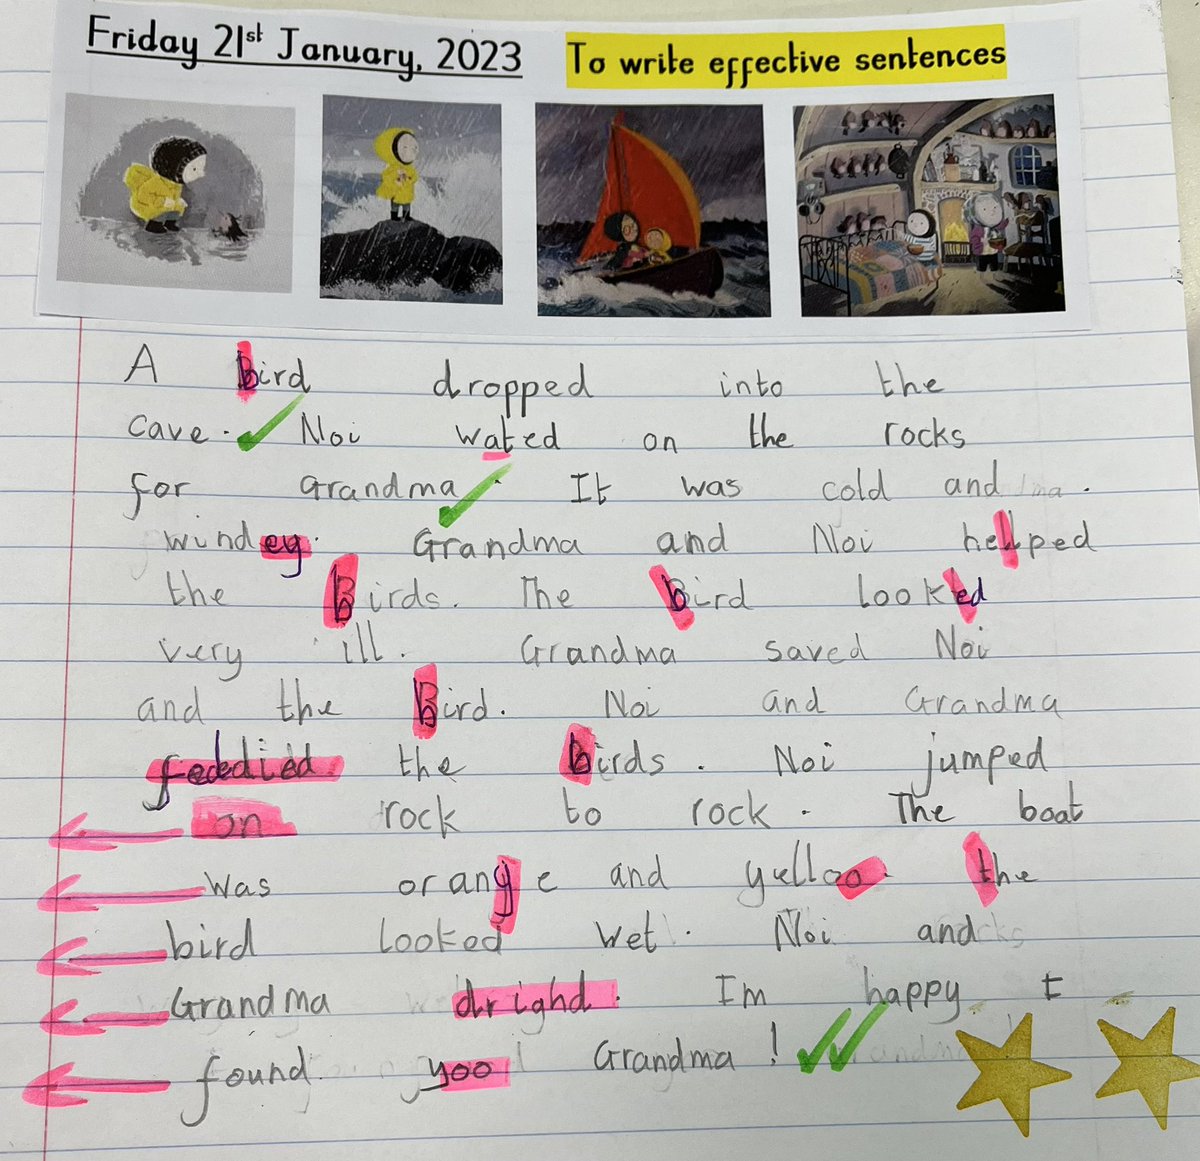 Friday 21st January, 2023 To write effective sentences
A bird dropped into the
cave. Noi wated on the rocks
for Grandma. It was cold and
windey. Grandma and Noi helped
the Birds. The bird looked
very ill. Grandma saved Noi
and the Bird. Noi and Grandma
the birds. Noi jumped
on rock to rock. The boat
was orange and yelloo. the
bird looked wet. Noi and
Grandma drighd. Im happy I
found yoo Grandma!